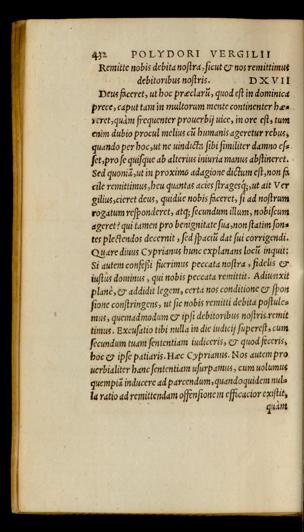 432 POLYDORI VERGILII
Remitte nobis debita nostra, sicut & nos remittimus
debitoribus nostris. DXVII
Deus faceret, ut hoc præclarũ, quod est in dominica
prece, caput tam in multorum mente continenter hæ-
reret, quàm frequenter prouerbij uice, in ore est, tum
enim dubio procul melius cũ humanis ageretur rebus,
quando per hoc, ut ne uindicta sibi similiter damno es-
set, pro se quisque ab alterius iniuria manus abstineret.
Sed quoniã, ut in proximo adagione dictum est, non fa
cile remittimus, heu quantas acies stragesq;, ut ait Ver
gilius, cieret deus, quidue nobis faceret, si ad nostrum
rogatum responderet, atq; secundum illum, nobiscum
ageret? qui tamen pro benignitate sua, non statim son-
tes plectendos decernit, sed spaciũ dat sui corrigendi.
Quare diuus Cyprianus hunc explanans locũ inquit:
Si autem confessi fuerimus peccata nostra, fidelis &
iustus dominus, qui nobis peccata remittit. Adiunxit
planè, & addidit legem, certa nos conditione & spon
sione constringens, ut sic nobis remitti debita postule-
mus, quemadmodum & ipsi debitoribus nostris remit
timus. Excusatio tibi nulla in die iudicij superest, cum
secundum tuam sententiam iudiceris, & quod feceris,
hoc & ipse patiaris. Hæc Cyprianus. Nos autem pro
uerbialiter hanc sententiam usurpamus, cum uolumus
quempiã inducere ad parcendum, quandoquidem nul-
la ratio ad remittendam offensionem efficacior existit,
quàm